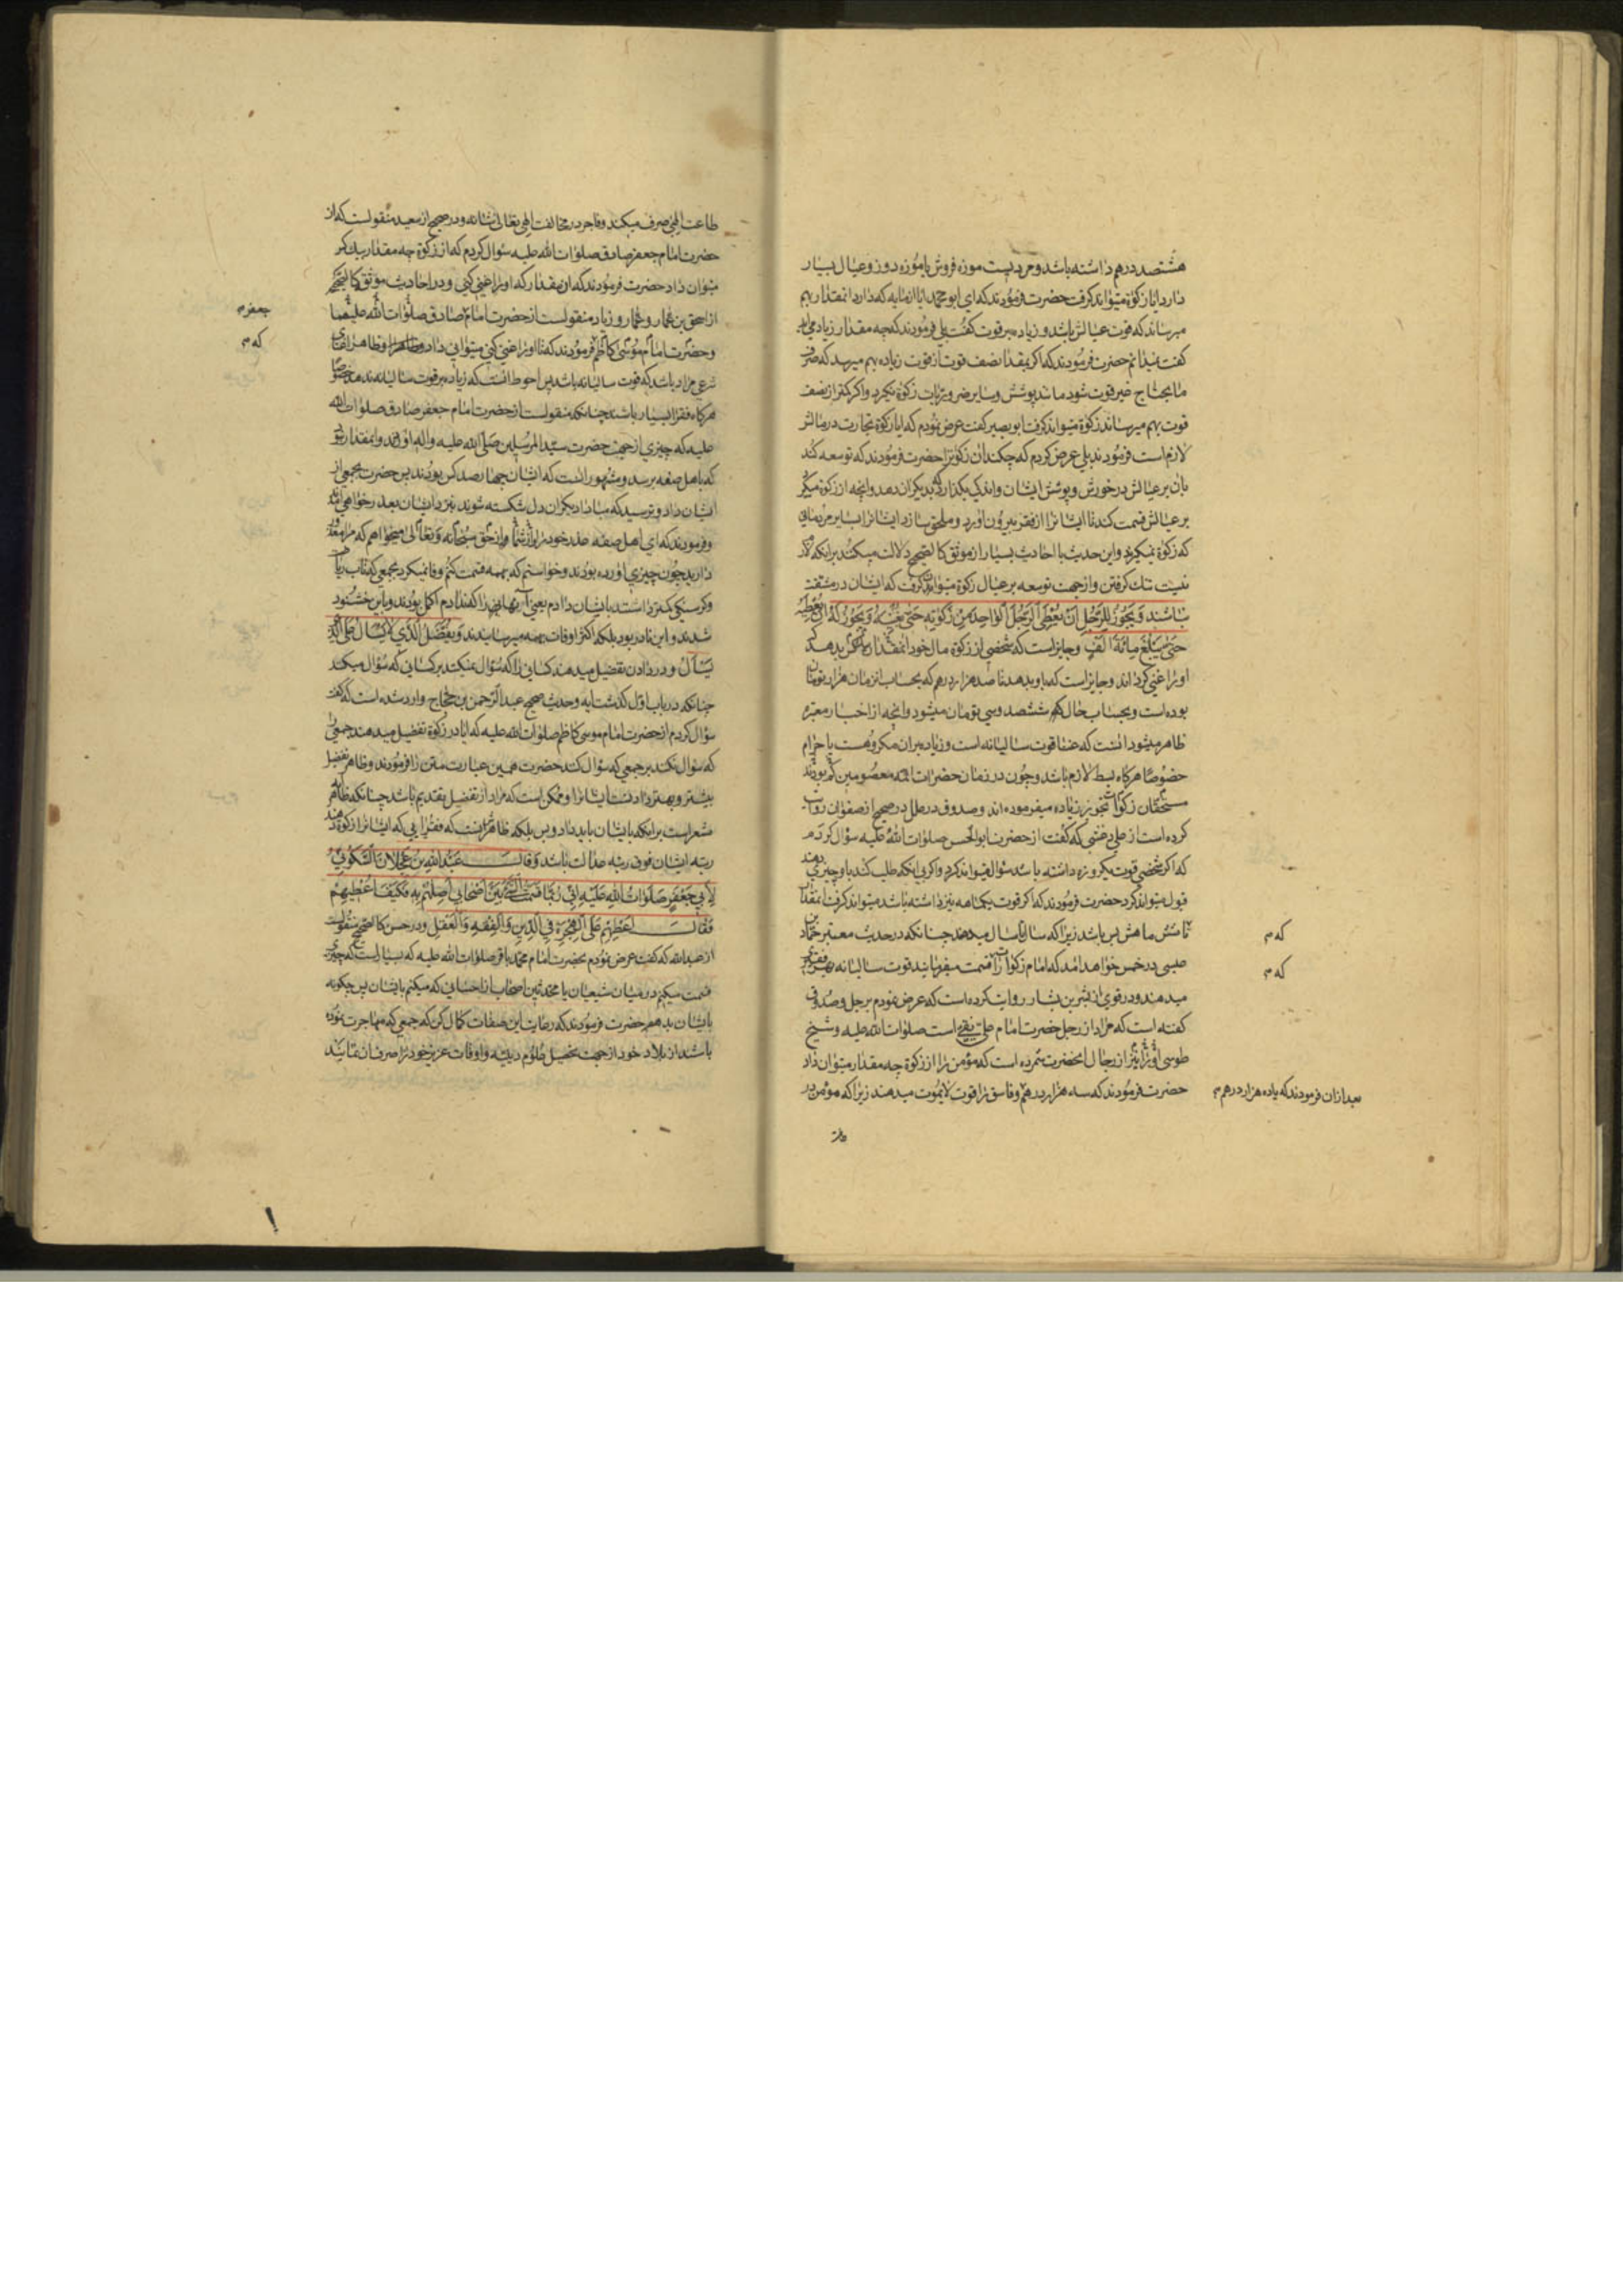 هشتصد درهم داشته باشد و مردیست موزه فروش یا موزه دوز و عیال بسیار
دارد ایا زکوة میتواند کرفت حضرت فرمودند که ای ابو محمد ایا از مایه که دارد انمقدار بهم
میرساند که قوت عیالش باشد و زیاده بر قوت کفت بلی فرمودند که چه مقدار زیاد می
کفت نمیدانم حضرت فرمودند که اکر بمقدار نصف قوت از قوت زیاده بهم میرسد که صرف
مایحتاج غیر قوت شود مانند پوشش و سایر ضروریات زکوة نکیرد و اکر کمتر از نصف
قوت بهم میرساند زکوة میتواند کرفت ابو بصیر کفت عرض نمودم که ایا زکوة تجارت در مالش
لازم است فرمودند بلی عرض کردم که چکند ان زکوترا حضرت فرمودند که توسعه کند
بان بر عیالش در خورش و پوشش ایشان و اندکی بکذارد که بدیکران دهد و انچه از زکوة میکیرد
بر عیالش قسمت کند تا ایشانرا از فقر بیرون اورد و ملحق سازد ایشانرا بسایر مردمانی
که زکوة نمیکیرند و این حدیث با احادیث بسیار از موثق کالصحیح دلالت میکند برانکه لازم
نیست تنک کرفتن و از جهت توسعه بر عیال زکوة میتوان کرفت که ایشان در مشقت
نباشند وَ یَجُوزُ لِلرَّجُلِ اَنْ یُعْطِیَ الرَّجُلَ الْوَاحِدَ مِنْ زَکوتِهِ حَتّی یُغْنِیَهُ وَ یَجُوزُ لَهُ اَنْ یُعْطِیَهُ
حَتّی یَبْلُغَ مِائَةَ اَلْفٍ و جایز است که شخصی از زکوة مال خود انمقدار بیک کس بدهد که
او را غنی کرداند و جایز است که باو بدهد تا صد هزار درهم که بحساب انزمان هزار تومان
بوده است و بحساب حال ششصد و سی تومان میشود و انچه از اخبار معتبره
ظاهر میشود انست که غنا قوت سالیانه است و زیاده بر ان مکروهست یا حرام
خصوصا هرکاه بسط لازم باشد و چون در زمان حضرات ائمه معصومین کم بودند
مستحقان زکوة تجویز زیاده میفرموده اند و صدوق در علل در صحیح از صفوان روایت
کرده است از علی خثعمی که کفت از حضرت ابوالحسن صلوات الله علیه سؤال کردم
که اکر شخصی قوت یکروزه داشته باشد سؤال میتواند کرد و اکر بی انکه طلب کند باو چیزی دهند
قبول میتواند کرد حضرت فرمودند که اکر قوت یکماهه نیز داشته باشد میتواند کرفت انمقدار
تا شش ماهش بس باشد زیرا که سال تا سال میدهند چنانکه در حدیث معتبر حماد بن
عیسی در خمس خواهد امد که امام زکوات را قسمت میفرماید قوت سالیانه بهر فقیری
میدهند و در قوی از بشر بن بشار روایت کرده است که عرض نمودم برجل و صدوق
کفته است که مراد از رجل حضرت امام علی نقی است صلوات الله علیه و شیخ
طوسی او را نیز از رجال انحضرت شمرده است که مؤمن را از زکوة چه مقدار میتوان داد
حضرت فرمودند که سه هزار درهم و فاسق را قوت لایموت میدهند زیرا که مؤمن در
که م
که م
بعد ازان فرمودند که یا ده هزار درهم م
طاعت الهی صرف میکند و فاجر در مخالفت الهی تعالی شانه و در صحیح از سعید منقولست که از
حضرت امام جعفر صادق صلوات الله علیه سؤال کردم که از زکوة چه مقدار بیک کس
میتوان داد حضرت فرمودند که ان مقدار که او را غنی کنی و در احادیث موثق کالصحیح
از اسحق بن عمار و عمار و زیاد منقولست از حضرت امام صادق صلوات الله علیهما
و حضرت امام موسی کاظم فرمودند که تا او را غنی کنی میتوانی داد و ظاهرا غنای
شرعی مراد باشد که قوت سالیانه باشد پس احوط انست که زیاده بر قوت سالیانه ندهند خصوصا
هرکاه فقرا بسیار باشند چنانکه منقولست از حضرت امام جعفر صادق صلوات الله
علیه که چیزی از جهت حضرت سید المرسلین صلی الله علیه واله اوردند و انمقدار نبود
که باهل صفه برسد و مشهور انست که ایشان چهارصد کس بودند پس حضرت بجمعی از
ایشان داد و ترسید که مبادا دیکران دل شکسته شوند بنزد ایشان بعذر خواهی امد
و فرمودند که ای اهل صفه عذر خود را از شما و از حق سبحانه و تعالی میخواهم که مرا معذور
دارید چون چیزی اورده بودند و خواستم که بهمه قسمت کنم وفا نمیکرد بجمعی که تاب
و کرسنکی کمتر داشتند بایشان دادم یعنی انهایی را که ندادم اکمل بودند و باین خشنود
شدند و این نادر بود بلکه اکثر اوقات بهمه میرسانیدند وَ یُفَضَّلُ الَّذی لا یَسْأَلُ عَلَی الَّذی
یَسْأَلُ و در دادن تفضیل میدهند کسانی را که سؤال نمیکنند بر کسانی که سؤال میکنند
چنانکه در باب اول کذشت ایه و حدیث صحیح عبد الرحمن بن حجاج وارد شده است که کفت
سؤال کردم از حضرت امام موسی کاظم صلوات الله علیه که ایا در زکوة تفضیل میدهند جمعی را
که سؤال نکنند بر جمعی که سؤال کنند حضرت همین عبارت متن را فرمودند و ظاهر تفضیل
بیشتر و بهتر دادنست ایشانرا و ممکن است که مراد از تفضیل تقدیم باشد چنانکه ظاهر
مشعر است برانکه بایشان باید داد و بس بلکه ظاهرا انست که فقرایی که ایشانرا زکوة دهند
رتبه ایشان فوق رتبه عدالت باشد وَ قالَ عَبْدُ اللهِ بْنُ عَجْلانَ السَّکُونِیُّ
لِاَبی جَعْفَرٍ صَلَواتُ اللهِ عَلَیْهِ اِنّی رُبَّما قَسَمْتُ الشَّیْءَ بَیْنَ اَصْحابی اَصِلُهُمْ بِهِ فَکَیْفَ اُعْطیهِمْ
فَقالَ اَعْطِهِمْ عَلَی الْهِجْرَةِ فِی الدّینِ وَ الْفِقْهِ وَ الْعَقْلِ و در حسن کالصحیح منقولست
از عبدالله که کفت عرض نمودم بحضرت امام محمد باقر صلوات الله علیه که بسیار است که چیزی
قسمت میکنم در میان شیعیان یا محدثین اصحاب از احسانی که میکنم بایشان پس چکونه
بایشان بدهم حضرت فرمودند که رعایت این صفات کمال کن که جمعی که مهاجرت نموده
باشند از بلاد خود از جهت تحصیل علوم دینیه و اوقات عزیز خود را صرف ان نمایند
جعفر م
که م